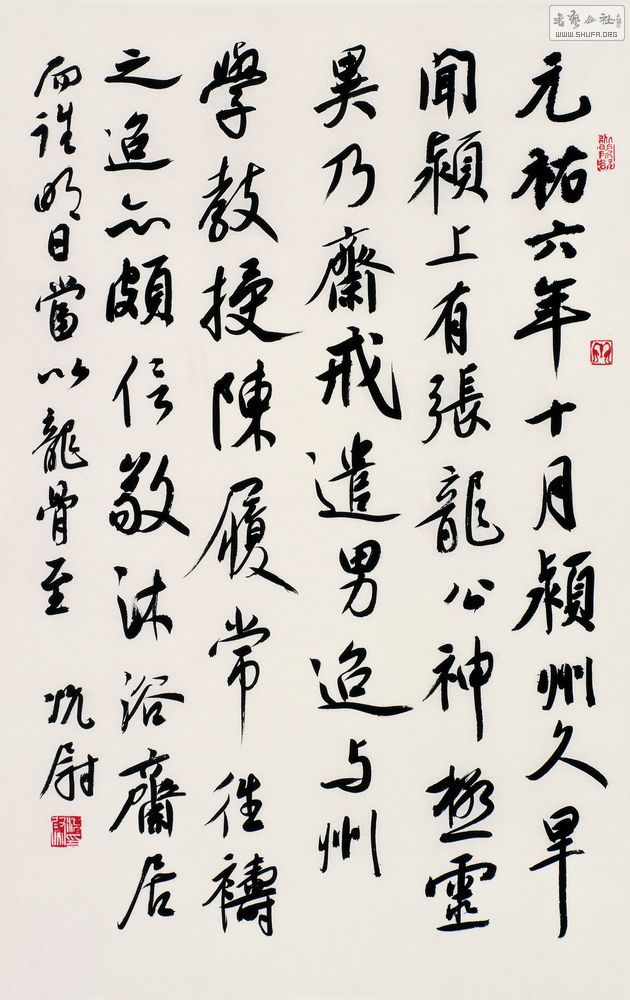 元祐六年十月潁州久旱
聞潁上有張龍公神極靈
異乃齋戒遣男迨与州
學教授陳履常往禱
之迨亦頗信敬沐浴齋居
而誰明日當以龍骨至
WWW.SHUFA.ORG